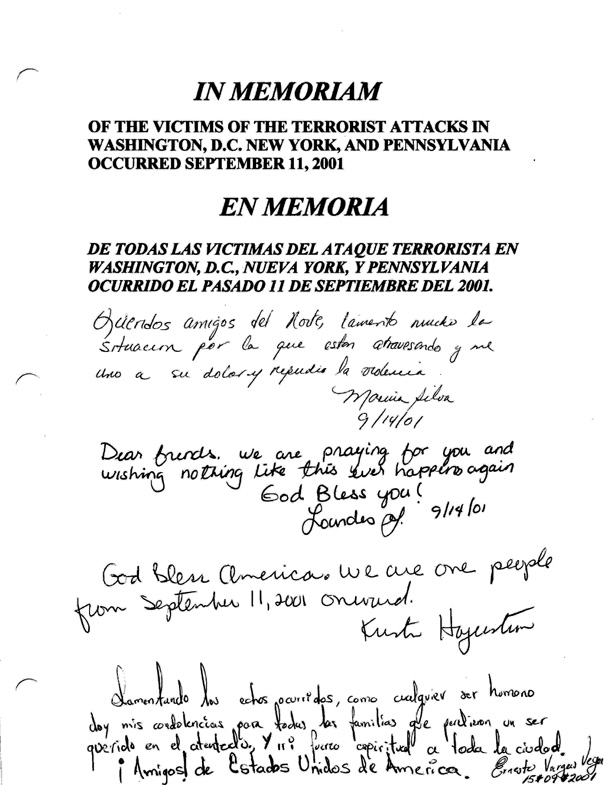 IN MEMORIAM
OF THE VICTIMS OF THE TERRORIST ATTACKS IN
WASHINGTON, D.C. NEW YORK, AND PENNSYLVANIA
OCCURRED SEPTEMBER 11, 2001
EN MEMORIA
DE TODAS LAS VICTIMAS DEL ATAQUE TERRORISTA EN
WASHINGTON, D.C., NUEVA YORK, Y PENNSYLVANIA
OCURRIDO EL PASADO 11 DE SEPTIEMBRE DEL 2001.
Queridos amigos del Norte, lamento mucho la
situacion por la que estan atravesando y me
uno a su dolor y repudio la violencia.
Silva
9/14/01
Dear friends. we are praying for you and
wishing nothing like this ever happens again
God Bless you!
Lourdes 9/14/01
God Bless America. We are one people
from September 11, 2001 onward.
Lamentando los echos ocurridos, como cualquier ser humano
doy mis condolencias para todas las familias que perdieron un ser
querido en el atentado, Y mi fuerza espiritual a toda la ciudad.
¡Amigos! de Estados Unidos de America. Ernesto Vargas Vega
15*09*2001